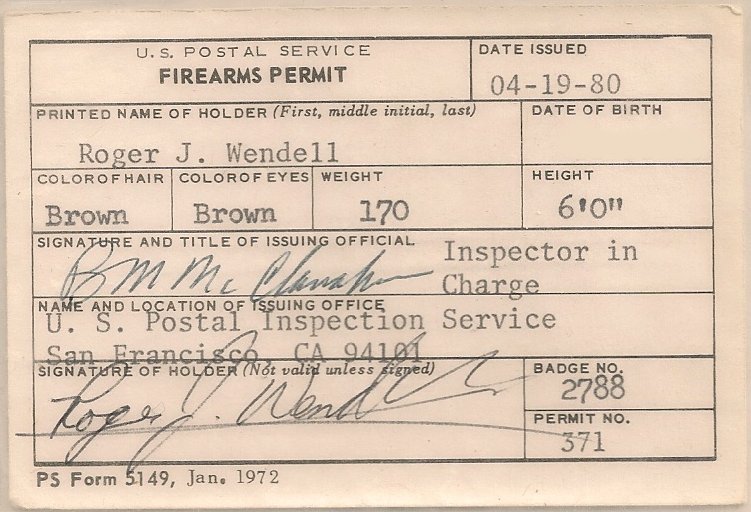 U.S. POSTAL SERVICE
FIREARMS PERMIT
DATE ISSUED
04-19-80
PRINTED NAME OF HOLDER (First, middle initial, last)
Roger J. Wendell
DATE OF BIRTH
COLOR OF HAIR
Brown
COLOR OF EYES
Brown
WEIGHT
170
HEIGHT
6'0"
SIGNATURE AND TITLE OF ISSUING OFFICIAL
B M McClanahan
Inspector in
Charge
NAME AND LOCATION OF ISSUING OFFICE
U. S. Postal Inspection Service
San Francisco, CA 94101
SIGNATURE OF HOLDER (Not valid unless signed)
Roger J. Wendell
BADGE NO.
2788
PERMIT NO.
371
PS Form 5149, Jan. 1972